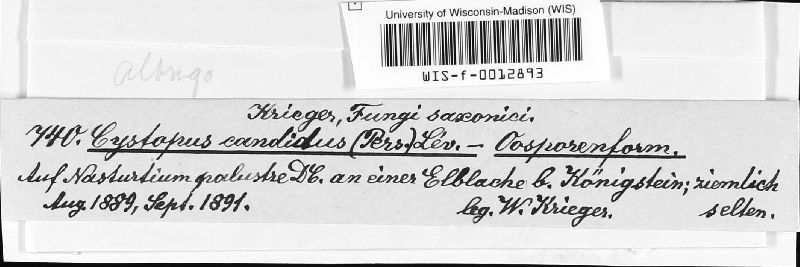 University of Wisconsin-Madison (WIS)
WIS-f-0012893
Albugo
Krieger, Fungi saxonici.
740. Cystopus candidus (Pers.) Lév. — Oosporenform.
Auf Nasturtium palustre DC. an einer Elblache b. Königstein; ziemlich
Aug. 1889, Sept. 1891. leg. W. Krieger. selten.